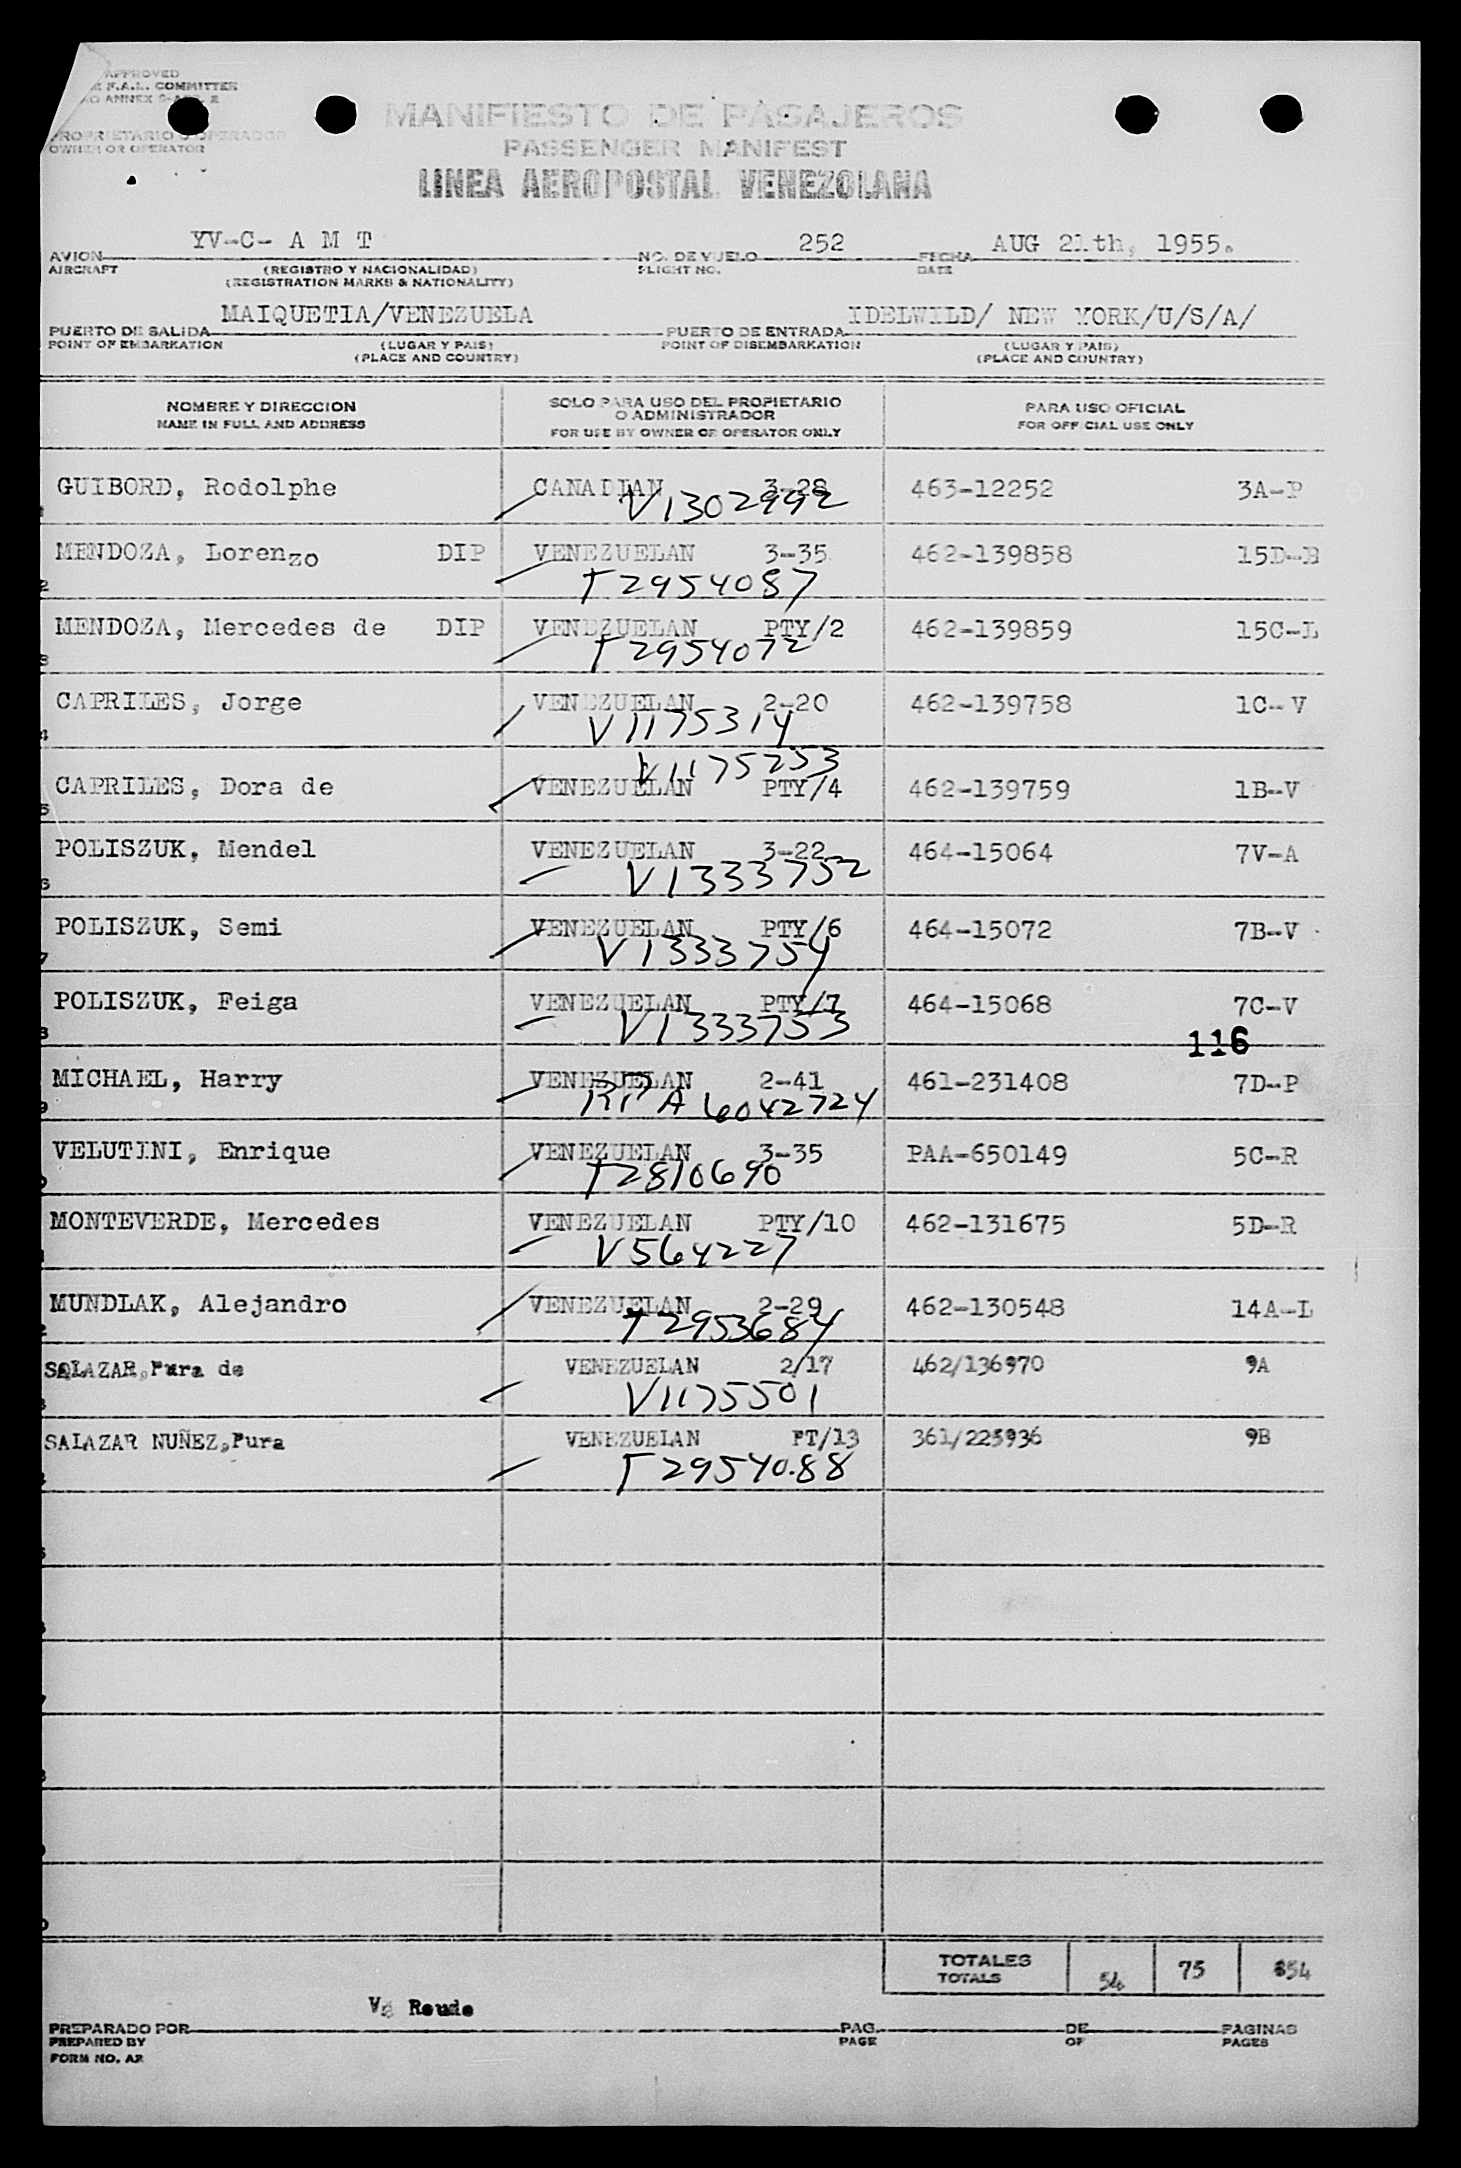 APPROVED
F.A.L. COMMITTEE
ANNEX 9-APP. 2
PROPRIETARIO O OPERADOR
OWNER OR OPERATOR
MANIFIESTO DE PASAJEROS
PASSENGER MANIFEST
LINEA AEROPOSTAL VENEZOLANA
YV-C- A M T 252 AUG 21th, 1955.
AVION NO. DE VUELO FECHA
AIRCRAFT (REGISTRO Y NACIONALIDAD) FLIGHT NO. DATE
(REGISTRATION MARKS & NATIONALITY)
MAIQUETIA/VENEZUELA IDELWILD/ NEW YORK/U/S/A/
PUERTO DE SALIDA PUERTO DE ENTRADA
POINT OF EMBARKATION (LUGAR Y PAIS) POINT OF DISEMBARKATION (LUGAR Y PAIS)
(PLACE AND COUNTRY) (PLACE AND COUNTRY)
NOMBRE Y DIRECCION SOLO PARA USO DEL PROPIETARIO O ADMINISTRADOR PARA USO OFICIAL
NAME IN FULL AND ADDRESS FOR USE BY OWNER OR OPERATOR ONLY FOR OFFICIAL USE ONLY
GUIBORD, Rodolphe CANADIAN 3-28 463-12252 3A-P
1 V1302992
MENDOZA, Lorenzo DIP VENEZUELAN 3-35 462-139858 15D-R
2 T2954087
MENDOZA, Mercedes de DIP VENEZUELAN PTY/2 462-139859 15C-L
3 T2954072
CAPRILES, Jorge VENEZUELAN 2-20 462-139758 1C-V
4 V1175314
V1175253
CAPRILES, Dora de VENEZUELAN PTY/4 462-139759 1B-V
5
POLISZUK, Mendel VENEZUELAN 3-22 464-15064 7V-A
6 V1333752
POLISZUK, Semi VENEZUELAN PTY/6 464-15072 7B-V
7 V1333754
POLISZUK, Feiga VENEZUELAN PTY/7 464-15068 7C-V
8 V1333753 116
MICHAEL, Harry VENEZUELAN 2-41 461-231408 7D-P
9 RP A6042724
VELUTINI, Enrique VENEZUELAN 3-35 PAA-650149 5C-R
0 T2810690
MONTEVERDE, Mercedes VENEZUELAN PTY/10 462-131675 5D-R
V564227
MUNDLAK, Alejandro VENEZUELAN 2-29 462-130548 14A-L
2 T2953684
SALAZAR,Pura de VENEZUELAN 2/17 462/136970 9A
3 V1175501
SALAZAR NUÑEZ,Pura VENEZUELAN PT/13 361/225936 9B
T2954088
TOTALES 54 75 654
TOTALS
PREPARADO POR PAG. DE PAGINAS
PREPARED BY PAGE OF PAGES
FORM NO. AR